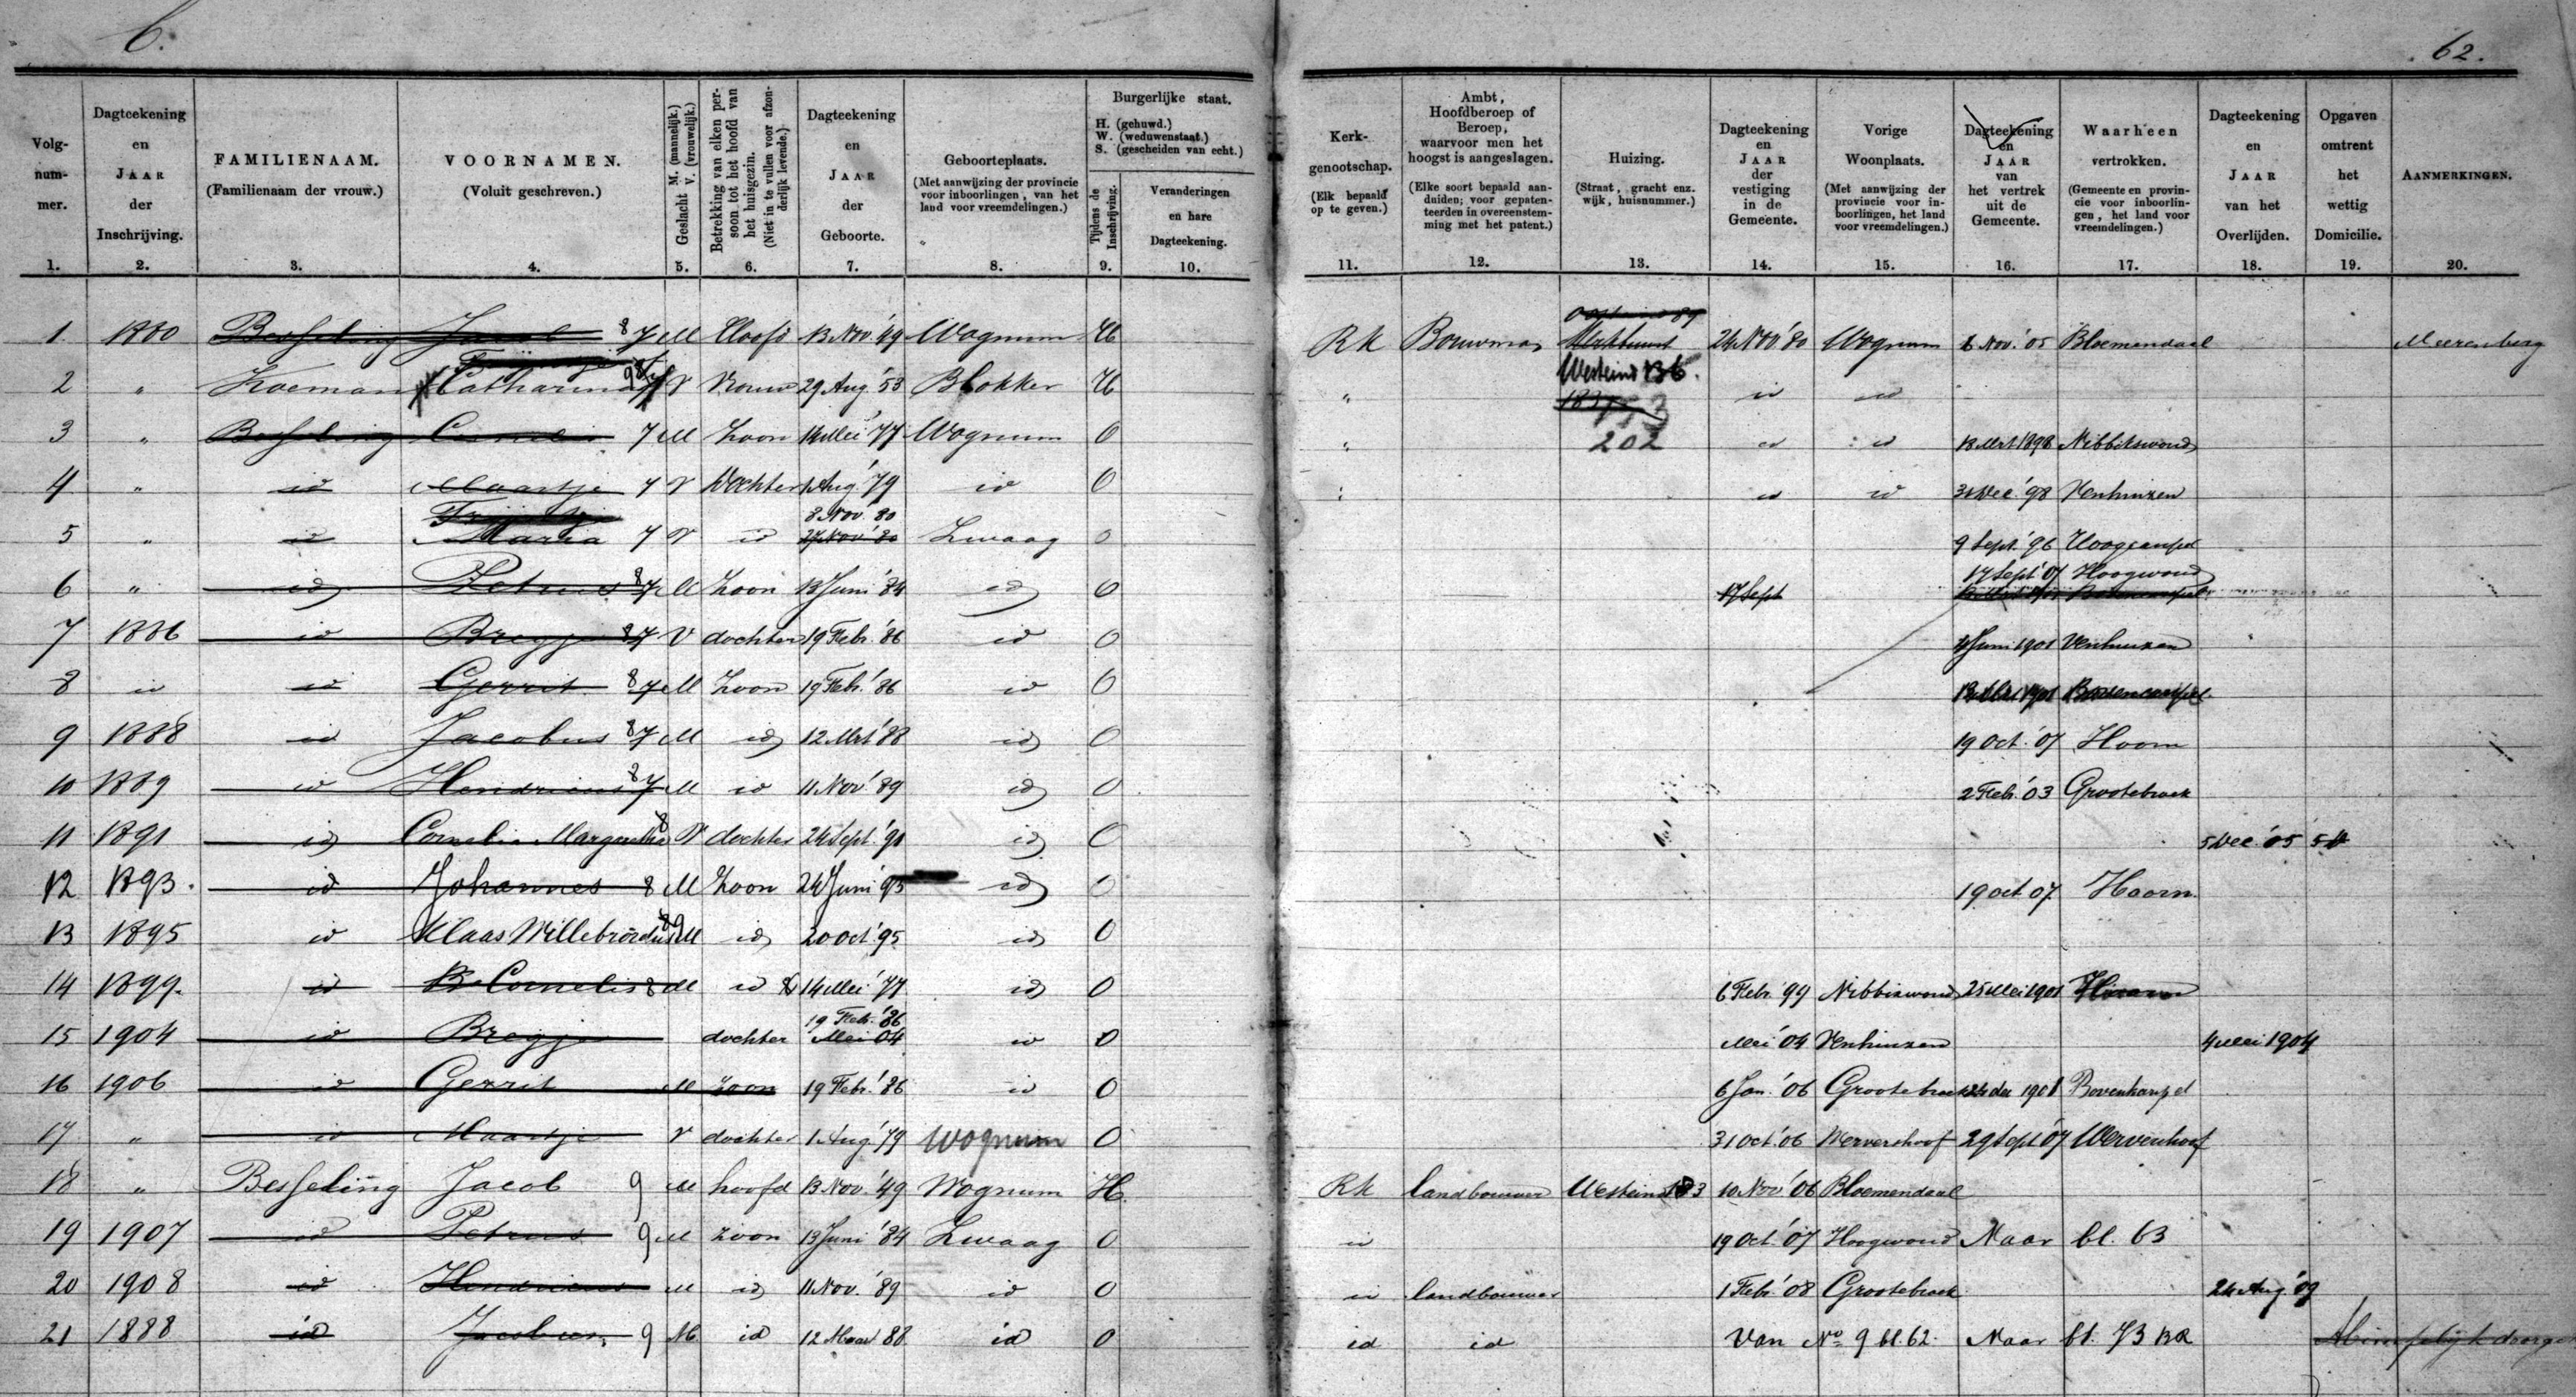 6.
62.
Volg-
num-
mer.
1.
Dagteekening
en
JAAR
der
Inschrijving.
2.
FAMILIENAAM.
(Familienaam der vrouw.)
3.
VOORNAMEN.
(Voluit geschreven.)
4.
Geslacht M. (mannelijk.)
V. (vrouwelijk.)
5.
Betrekking van elken per-
soon tot het hoofd van
het huisgezin.
(Niet in te vullen voor afzon-
derlijk levende.)
6.
Dagteekening
en
JAAR
der
Geboorte.
7.
Geboorteplaats.
(Met aanwijzing der provincie
voor inboorlingen, van het
land voor vreemdelingen.)
8.
Burgerlijke staat.
H. (gehuwd.)
W. (weduwenstaat.)
S. (gescheiden van echt.)
Tijdens de
Inschrijving.
9.
Veranderingen
en hare
Dagteekening.
10.
Kerk-
genootschap.
(Elk bepaald
op te geven.)
11.
Ambt,
Hoofdberoep of
Beroep,
waarvoor men het
hoogst is aangeslagen.
(Elke soort bepaald aan-
duiden; voor gepaten-
teerden in overeenstem-
ming met het patent.)
12.
Huizing.
(Straat, gracht enz.
wijk, huisnummer.)
13.
Dagteekening
en
JAAR
der
vestiging
in de
Gemeente.
14.
Vorige
Woonplaats.
(Met aanwijzing der
provincie voor in-
boorlingen, het land
voor vreemdelingen.)
15.
Dagteekening
en
JAAR
van
het vertrek
uit de
Gemeente.
16.
Waarheen
vertrokken.
(Gemeente en provin-
cie voor inboorlin-
gen, het land voor
vreemdelingen.)
17.
Dagteekening
en
JAAR
van het
Overlijden.
18.
Opgaven
omtrent
het
wettig
Domicilie.
19.
AANMERKINGEN.
20.
1 1880 Besseling Jacob 8 7 M Hoofd 13 Nov. '49 Wognum H RK Bouwman 24 Nov '80 Wognum 6 Nov. '05 Bloemendaal Meerenberg
2 " Koeman Catharina V Vrouw 29 Aug '53 Blokker H " Westeind 136. id id
3 " Besseling Cornelis 7 M Zoon 14 Mei '77 Wognum O " 202 id id 18 Mrt 1898 Nibbikwoud
4 " id Maartje 7 V Dochter 1 Aug '79 id O " id id 31 Dec '98 Venhuizen
Trijntje 8 Nov. '80
5 " id Maria 7 V id 27 Nov '80 Zwaag O 9 Sept. '96 Hoogcarspel
17 Sept '07 Hoogwoud
6 " id Petrus 8 7 M Zoon 13 Juni '84 id O 17 Sept
7 1886 id Bregje 8 7 V dochter 19 Febr. '86 id O 4 Juni 1901 Venhuizen
8 id id Gerrit 8 7 M Zoon 19 Febr. '86 id O 13 Mrt 1901 Bovencarspel
9 1888 id Jacobus 8 7 M id 12 Mrt '88 id O 19 Oct. '07 Hoorn
10 1889 id Hendricus 8 7 M id 11 Nov. '89 id O 2 Febr. '03 Grootebroek
11 1891 id Cornelia Margaretha 8 V dochter 24 Sept. '91 id O 5 Dec. '05
12 1893. id Johannes 8 M Zoon 24 Juni '93 id O 19 oct 07. Hoorn.
13 1895 id Klaas Willebrordus M id 20 oct. '95 id O
14 1899. id Cornelis 8 M id 14 Mei '77 id O 6 Febr. '99 Nibbixwoud 25 Mei 1901
19 Febr. '86
15 1904 id Bregje dochter Mei 04 id O Mei '04 Venhuizen 4 Mei 1904
16 1906 id Gerrit M Zoon 19 Febr. '86 id O 6 Jan. '06 Grootebroek 24 dec 1901 Bovenkarspel
17 " id Maartje V dochter 1 Aug '79 Wognum O 31 Oct '06 Wervershoof 29 Sept '07 Wervershoof
18 " Besseling Jacob 9 M hoofd 13 Nov. '49 Wognum H. RK landbouwer Westeind 183 10 Nov '06 Bloemendaal
19 1907 id Petrus 9 M zoon 13 Juni '84 Zwaag O id 19 Oct '07 Hoogwoud Naar bl. 63
20 1908 id Hendricus M id 11 Nov. '89 id O id landbouwer 1 Febr. '08 Grootebroek 24 Aug. '09
21 1888 id Jacobus 9 M. id 12 Maart 88 id O id id Van No 9 bl. 62. Naar bl. 73 BR